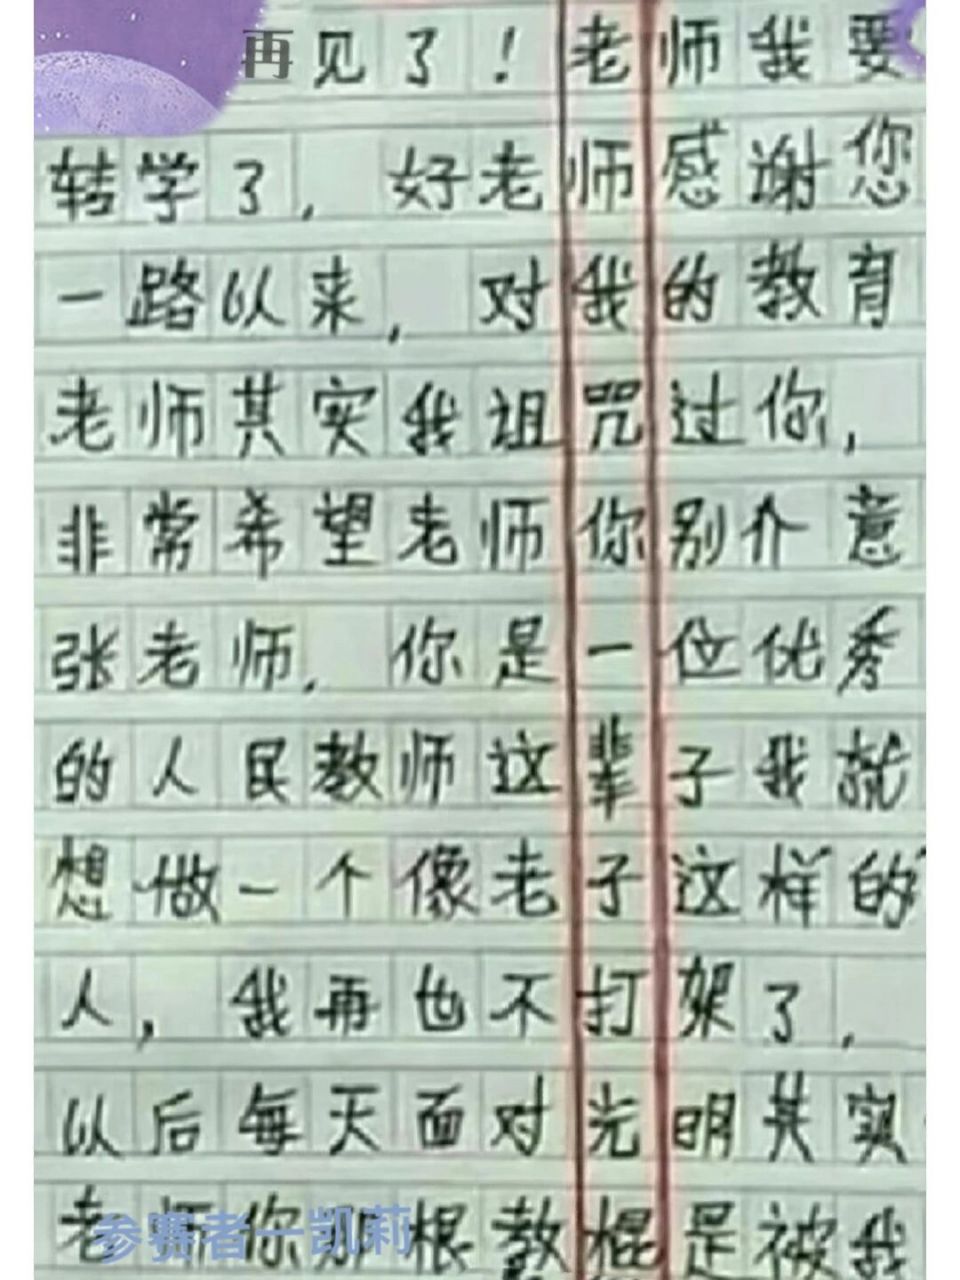 再见了！老师我要
转学了，好老师感谢您
一路以来，对我的教育
老师其实我诅咒过你，
非常希望老师你别介意
张老师，你是一位优秀
的人民教师这辈子我就
想做一个像老子这样的
人，我再也不打架了，
以后每天面对光明其实
老师你那根教棍是被我
参赛者一凯莉